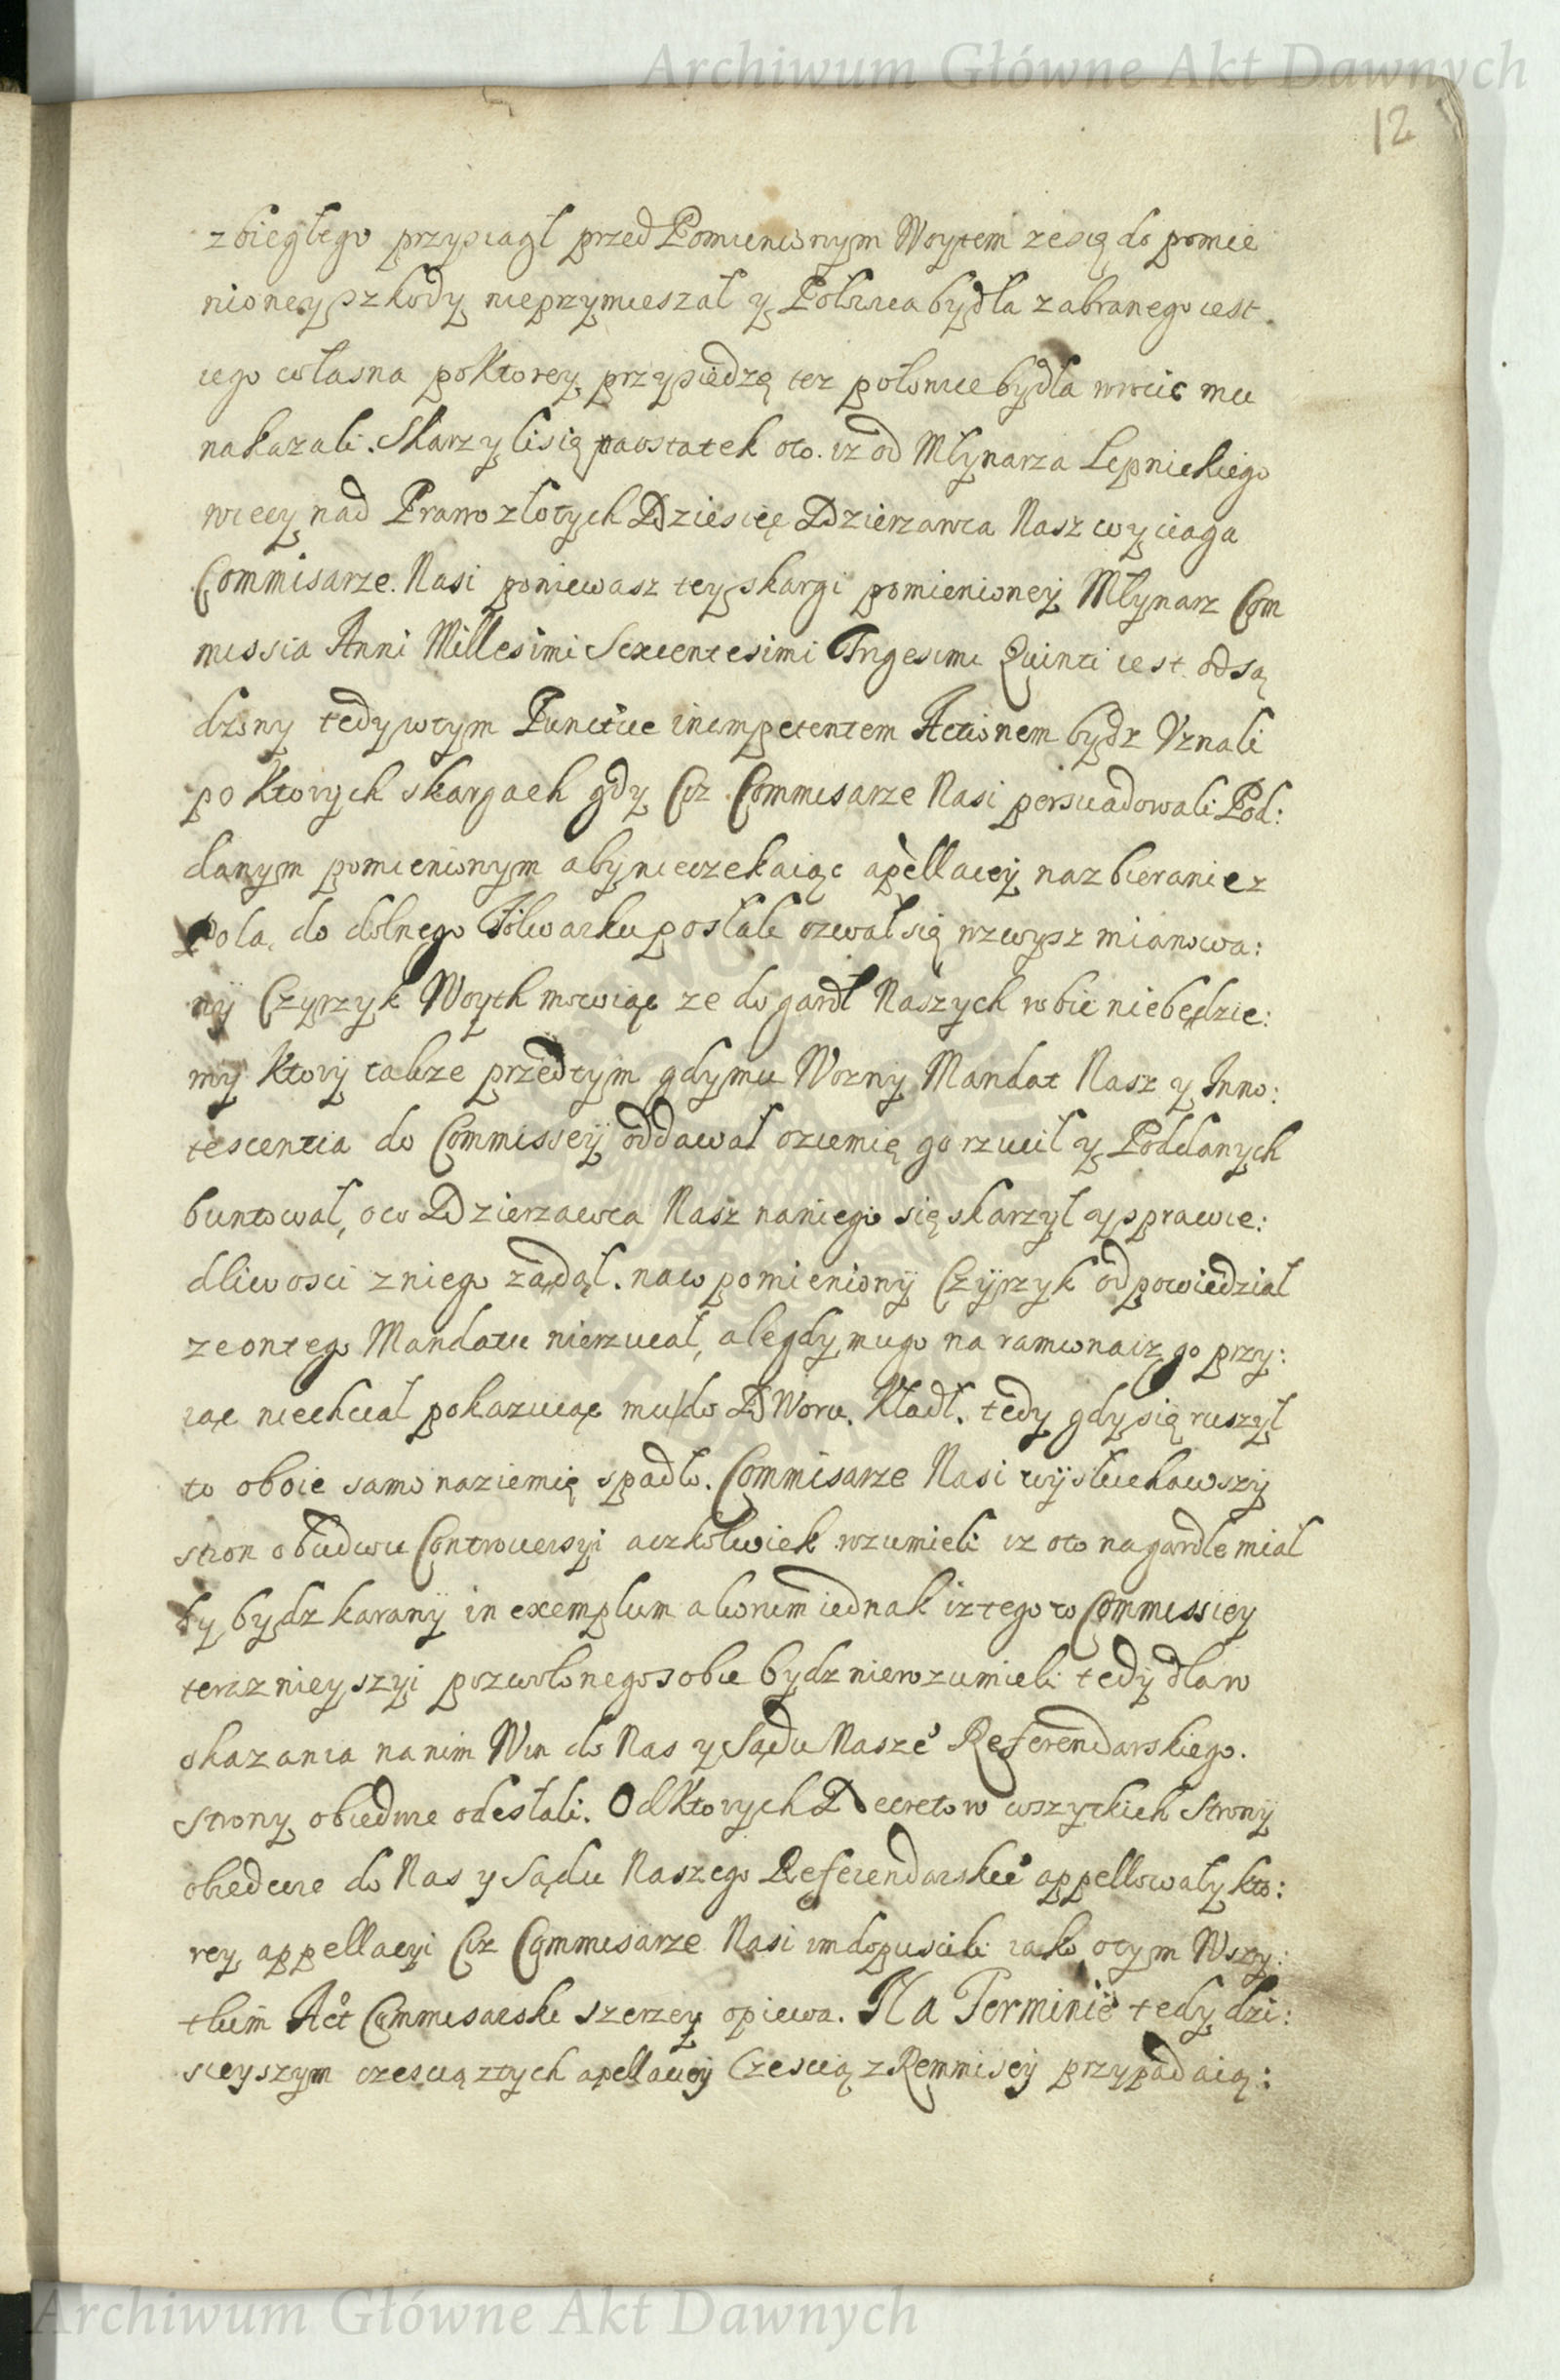 Archiwum Główne Akt Dawnych
12
zbiegłego przysiagł przed Pomienionym Woytem ze się do pomie
nioney szkody nieprzymieszał y Połowica bydła zabranego iest
iego własna po Ktorey przysiedzę tez połowice bydła wrócic mu
nakazali. Skarzyli się naostatek oto. iz od Młynarza Lepnickiego
wiecy nad Prawo złotych Dziesięc Dzierzawca Nasz wyciaga
Commisarze Nasi poniewasz tey skargi pomienioney Młynarz Com
missia Anni Millesimi Sexcentesimi Trigesimi Quinti iest odsą
dzony tedy wtym Punctcie incompetentem Actionem bydz Vznali
po Ktorych skargach gdy Ciz Commisarze Nasi persuadowali Pod:
danym pomienionym aby nieczekaiąc apellacey nazbieranie z
Pola, do dolnego Folwarku posłali ozwał się wzwysz mianowa:
ny Czyrzyk Woyth mowiąc ze do gardł Naszych robic niebędzie:
my Ktory takze przedtym gdy mu Wozny Mandat Nasz y Inno:
tescentia do Commissey oddawał oziemię go rzucił y Poddanych
buntował, oco Dzierzawca Nasz naniego się skarzył y sprawie:
dliwosci zniego ządał. naco pomieniony Czyrzyk odpowiedział
ze on tego Mandatu nierzucał, ale gdy mu go na ramiona iz go przy:
iąc niechciał pokazuiąc mu do DWoru. Kładł. tedy gdy się ruszył
to oboie samo naziemię spadło. Commisarze Nasi wysłuchawszy
stron obudwu Controuersyi aczkolwiek rozumieli iz oto nagardle miał
by bydz karany in exemplum aliorum iednak iz tego w Commissiey
teraznieyszyi pozwolonego sobie bydz nierozumieli tedy dla w
skazania nanim Win do Nas y Sądu Nasze° Referendarskiego.
Strony obiedwie odesłali. Od Ktorych Decretow wszytkich Strony
obiedwie do Nas y Sądu Naszego Referendarskie° appellowały kto:
rey appellacyi Ciz Commisarze Nasi im dopuscili iako otym Wszy:
tkim Act Commisarski szerzey opiewa. Na Terminie tedy dzi:
sieyszym czescią ztych apellacey Czescią z Remmisey przypadaią:
Archiwum Główne Akt Dawnych